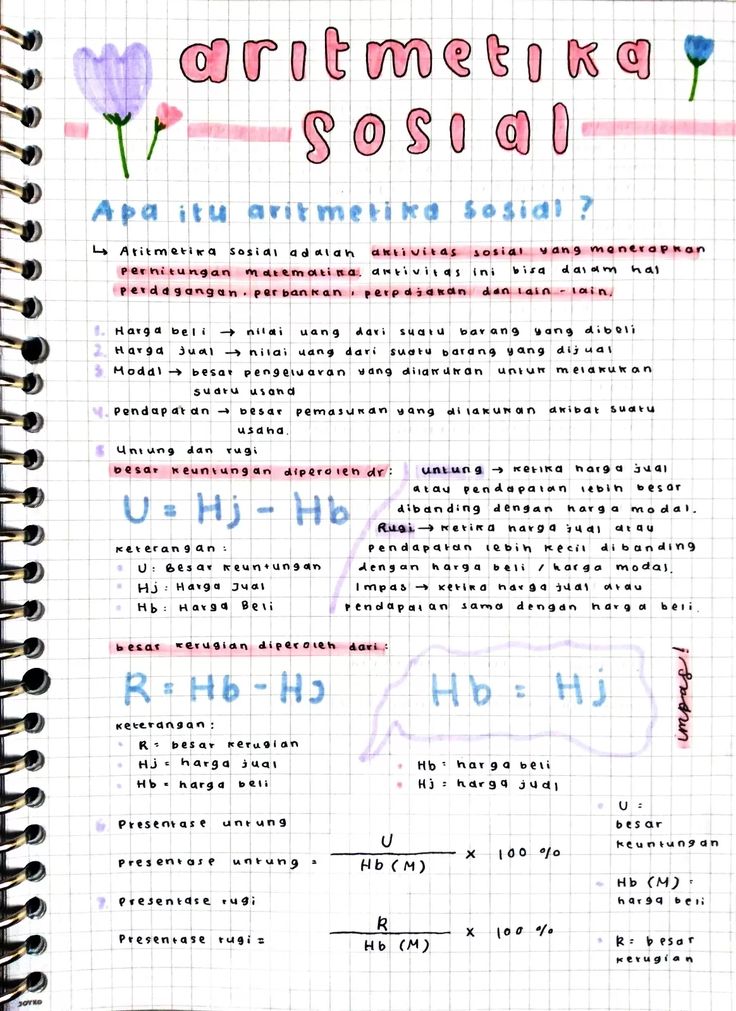 aritmetika
sosial
Apa itu aritmetika sosial?
↳ Aritmetika sosial adalah aktivitas sosial yang menerapkan
perhitungan matematika. aktivitas ini bisa dalam hal
perdagangan, perbankan, perpajakan dan lain-lain.
1. Harga beli → nilai uang dari suatu barang yang dibeli
2. Harga jual → nilai uang dari suatu barang yang dijual
3 Modal → besar pengeluaran yang dilakukan untuk melakukan
suatu usaha
4. Pendapatan → besar pemasukan yang dilakukan akibat suatu
usaha.
5 Untung dan rugi
besar keuntungan diperoleh dr:
U = Hj - Hb
keterangan:
U: Besar keuntungan
Hj: Harga Jual
Hb: Harga Beli
untung → ketika harga jual
atau pendapatan lebih besar
dibanding dengan harga modal.
Rugi → ketika harga jual atau
pendapatan lebih kecil dibanding
dengan harga beli / harga modal.
Impas → ketika harga jual atau
pendapatan sama dengan harga beli.
besar kerugian diperoleh dari:
R = Hb - Hj
keterangan:
R = besar kerugian
Hj = harga jual
Hb = harga beli
Hb = Hj
impas!
Hb = harga beli
Hj = harga jual
6 Presentase untung
Presentase untung = U / Hb (M) x 100 %
7. Presentase rugi
Presentase rugi = R / Hb (M) x 100 %
U =
besar
keuntungan
Hb (M) =
harga beli
R = besar
kerugian
JOYKO